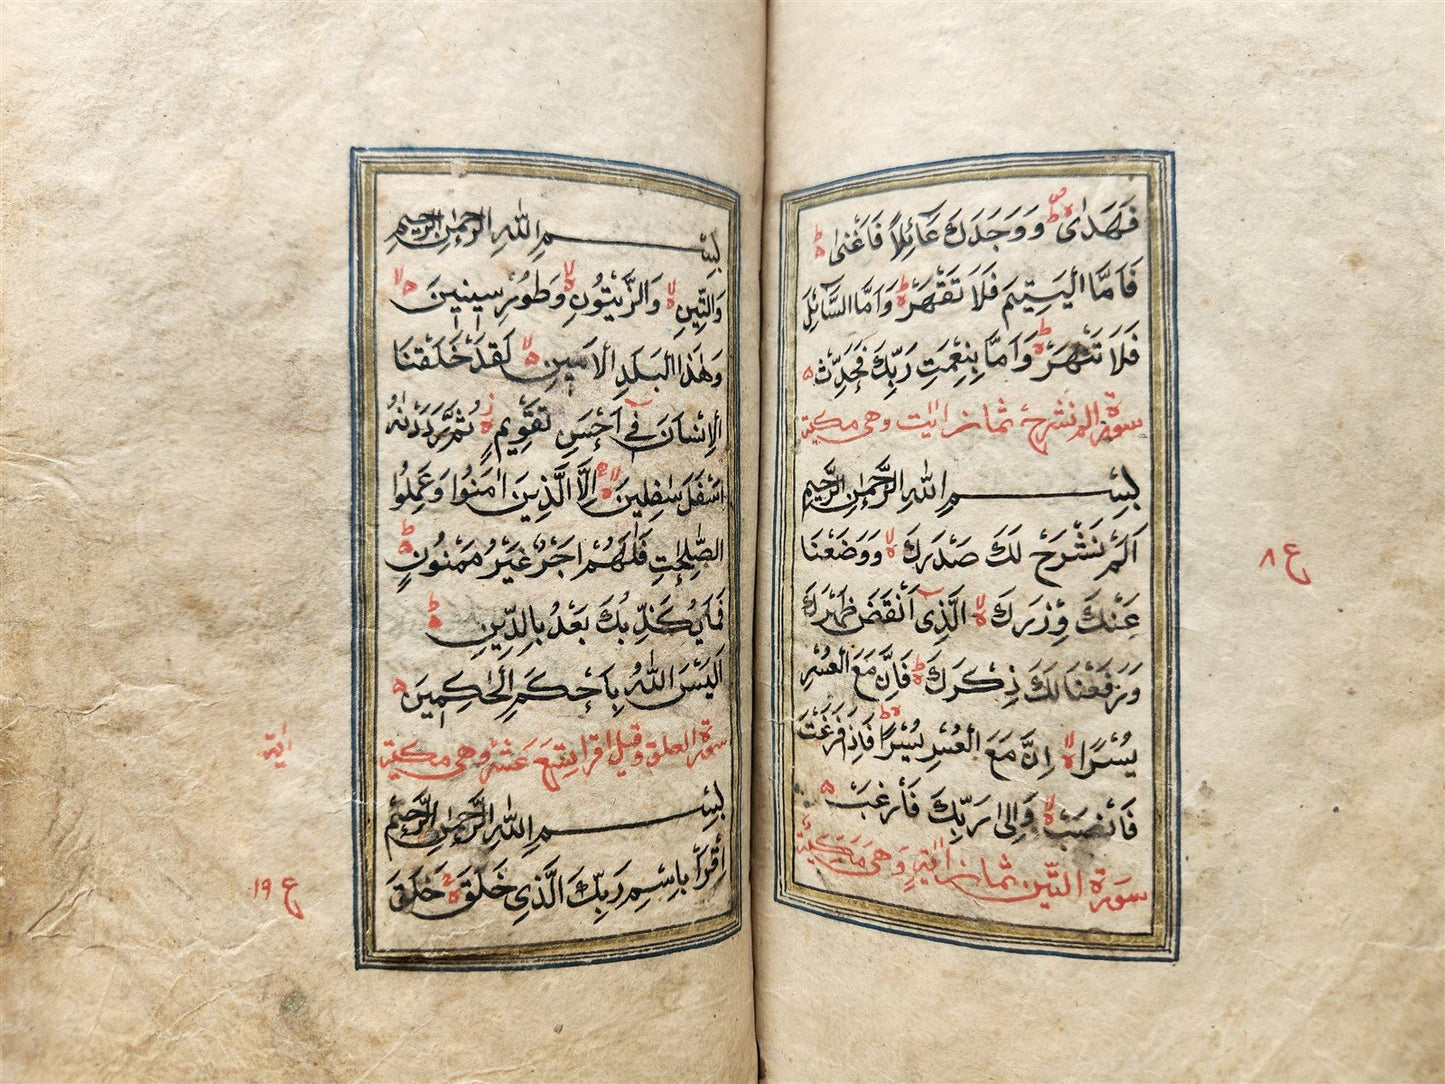 فَهَدٰى وَوَجَدَكَ عَآئِلًا فَاَغْنٰى
فَاَمَّا الْيَتِيمَ فَلَا تَقْهَرْ وَاَمَّا السَّآئِلَ
فَلَا تَنْهَرْ وَاَمَّا بِنِعْمَتِ رَبِّكَ فَحَدِّثْ
سورة الم نشرح ثمان اٰيت وهى مكية
بِسْمِ اللّٰهِ الرَّحْمٰنِ الرَّحِيمِ
اَلَمْ نَشْرَحْ لَكَ صَدْرَكَ وَوَضَعْنَا
عَنْكَ وِزْرَكَ الَّذِى اَنْقَضَ ظَهْرَكَ
وَرَفَعْنَا لَكَ ذِكْرَكَ فَاِنَّ مَعَ الْعُسْرِ
يُسْرًا اِنَّ مَعَ الْعُسْرِ يُسْرًا فَاِذَا فَرَغْتَ
فَانْصَبْ وَاِلٰى رَبِّكَ فَارْغَبْ
سورة التين ثمان اٰية وهى مكية
ع ٨
بِسْمِ اللّٰهِ الرَّحْمٰنِ الرَّحِيمِ
وَالتِّينِ وَالزَّيْتُونِ وَطُورِ سِينِينَ
وَهٰذَا الْبَلَدِ الْاَمِينِ لَقَدْ خَلَقْنَا
الْاِنْسَانَ فِى اَحْسَنِ تَقْوِيمٍ ثُمَّ رَدَدْنٰهُ
اَسْفَلَ سٰفِلِينَ اِلَّا الَّذِينَ اٰمَنُوا وَعَمِلُوا
الصّٰلِحٰتِ فَلَهُمْ اَجْرٌ غَيْرُ مَمْنُونٍ
فَمَا يُكَذِّبُكَ بَعْدُ بِالدِّينِ
اَلَيْسَ اللّٰهُ بِاَحْكَمِ الْحَاكِمِينَ
سورة العلق وقيل اقرا تسع عشر وهى مكية
اٰية
بِسْمِ اللّٰهِ الرَّحْمٰنِ الرَّحِيمِ
اِقْرَأْ بِاسْمِ رَبِّكَ الَّذِى خَلَقَ خَلَقَ
ع ١٩